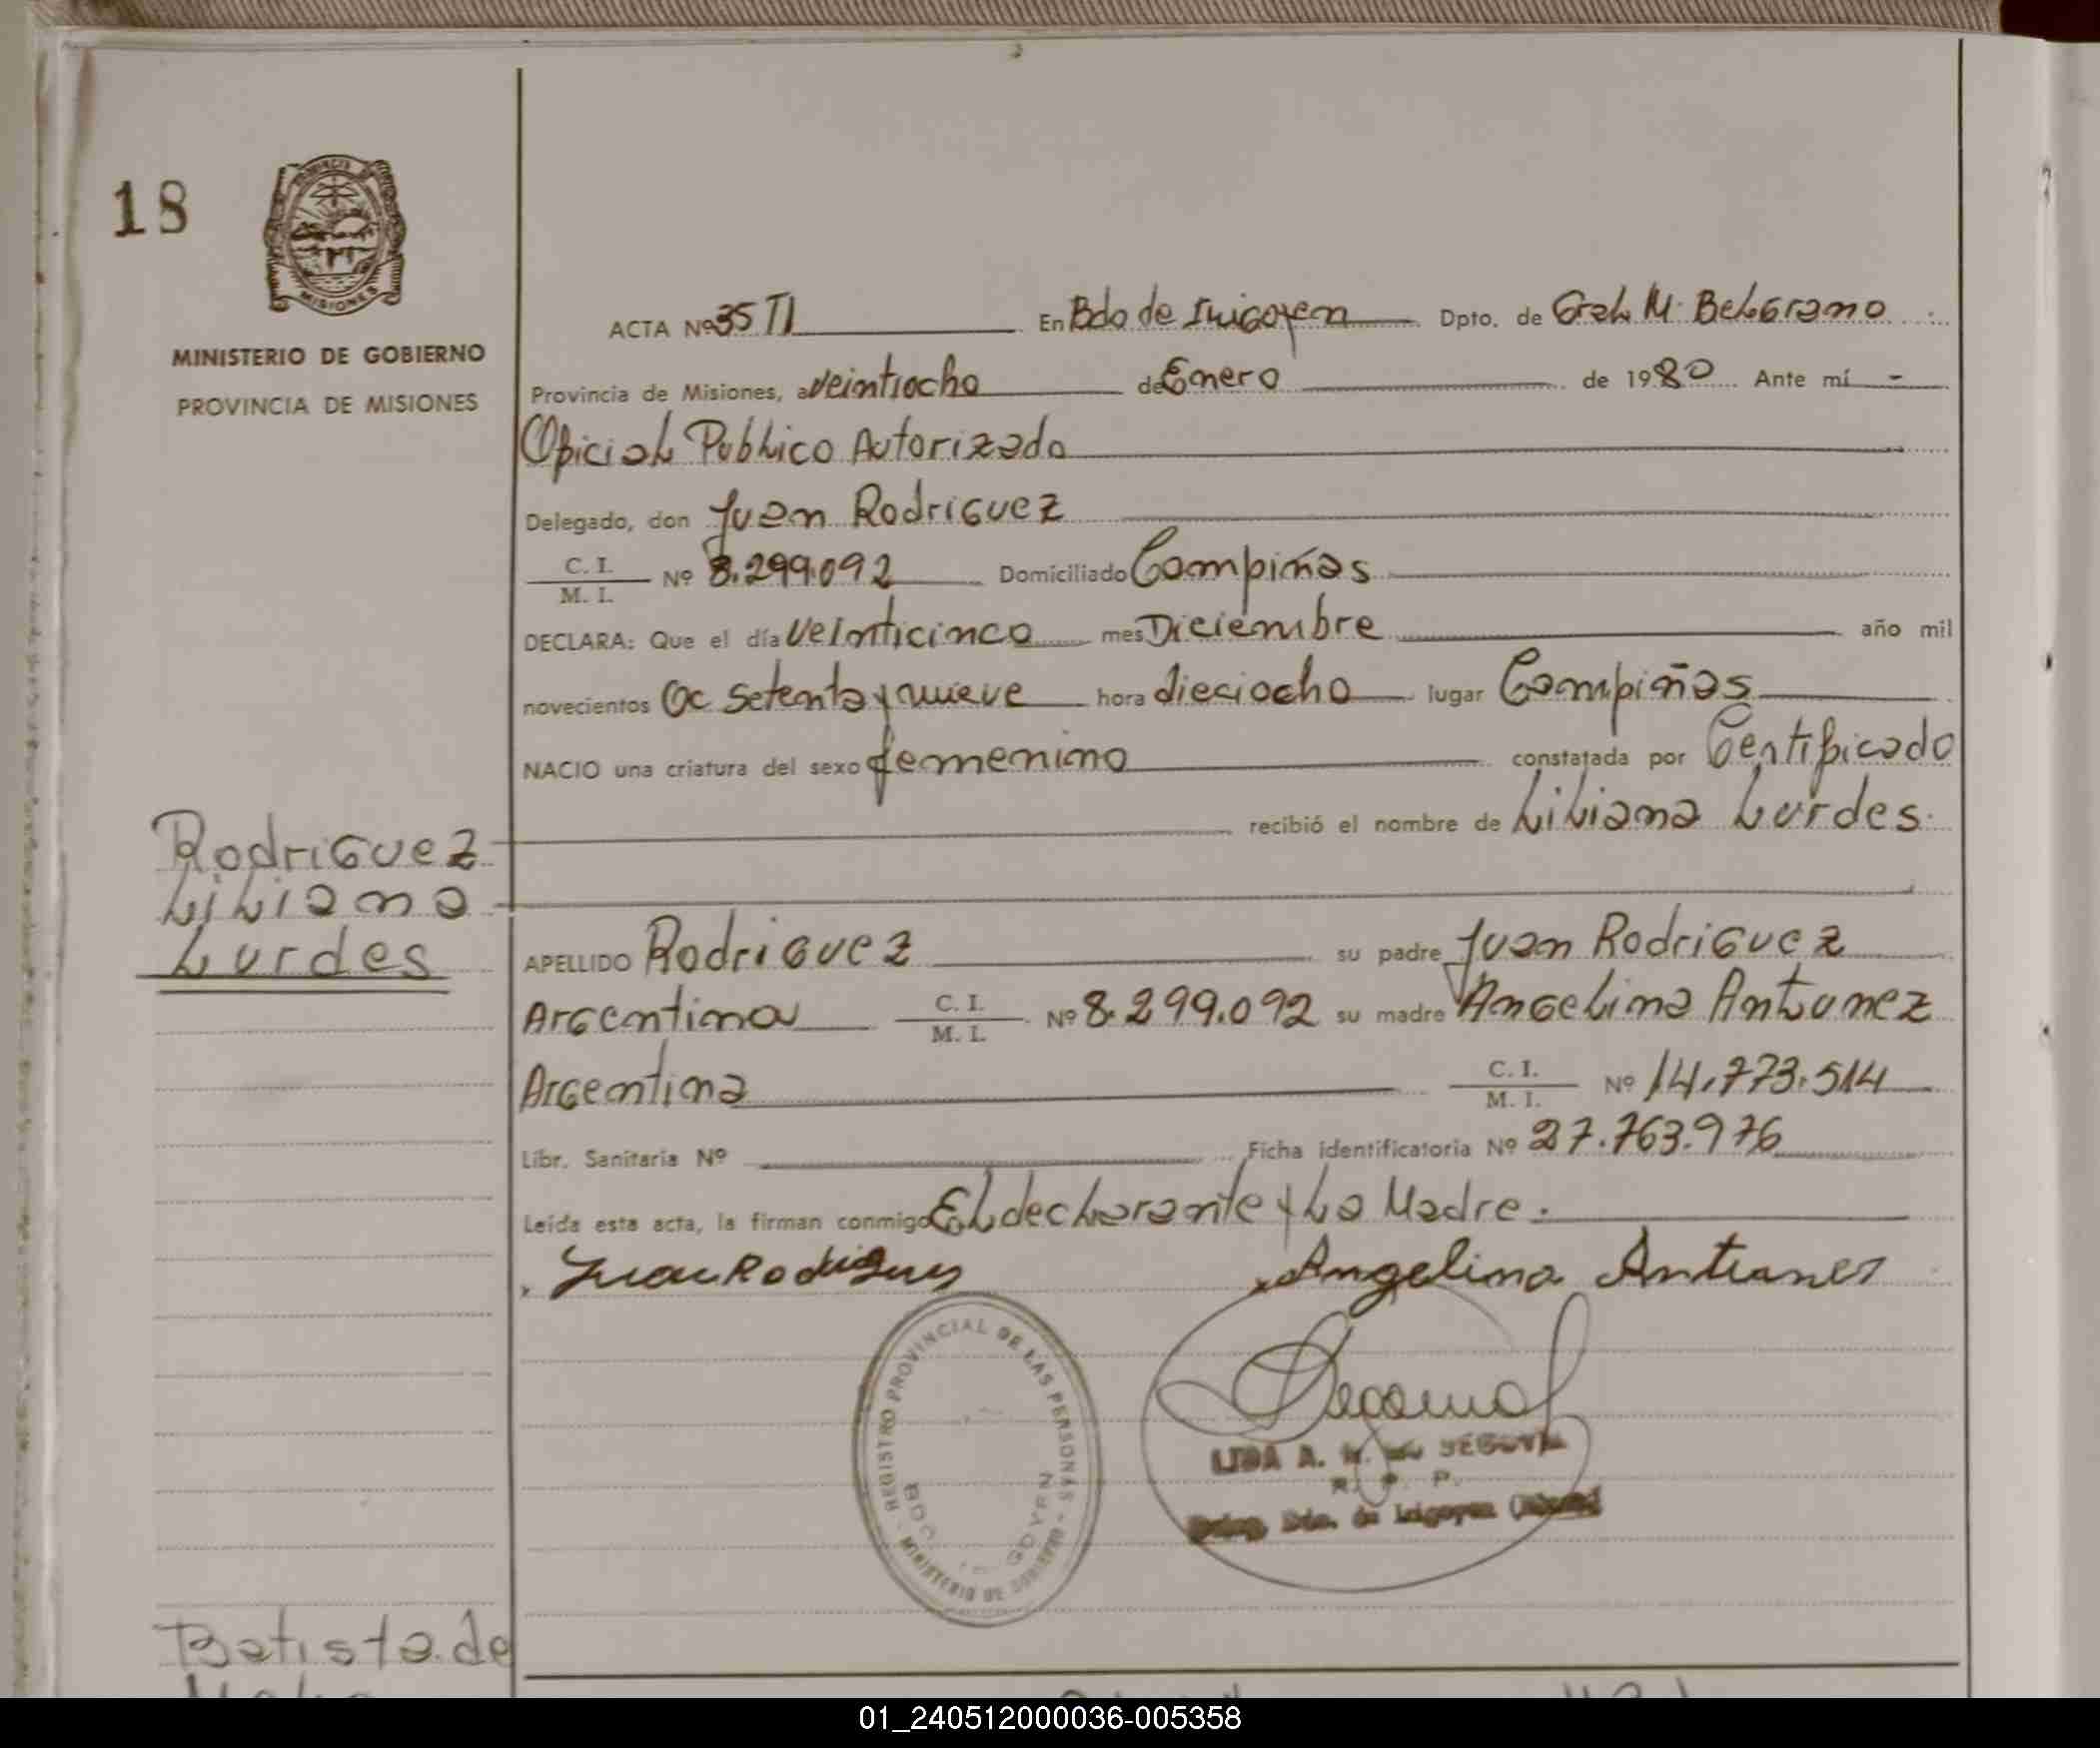 18
MISIONES
MINISTERIO DE GOBIERNO
PROVINCIA DE MISIONES
ACTA Nº 35 TI En Bdo de Irigoyen Dpto. de Gral. M. Belgrano
Provincia de Misiones, a Veintiocho de Enero de 1980 Ante mí -
Oficial Publico Autorizado
Delegado, don Juan Rodriguez
C. I. / M. I. Nº 8.299.092 Domiciliado Campiñas
DECLARA: Que el día Veinticinco mes Diciembre año mil
novecientos setenta y nueve hora dieciocho lugar Campiñas
NACIO una criatura del sexo femenino constatada por Certificado
recibió el nombre de Liliana Lurdes.
Rodriguez
Liliana
Lurdes
APELLIDO Rodriguez su padre Juan Rodriguez
Argentino C. I. / M. I. Nº 8.299.092 su madre Angelina Antunez
Argentina C. I. / M. I. Nº 14.773.514
Libr. Sanitaria Nº Ficha identificatoria Nº 27.763.976
Leída esta acta, la firman conmigo El declarante y La Madre.
Juan Rodriguez Angelina Antunes
REGISTRO PROVINCIAL DE LAS PERSONAS - MINISTERIO DE GOBIERNO -
LIDA A. SEGOVIA
R. P. P.
Bdo. de Irigoyen
Batista de
01_240512000036-005358